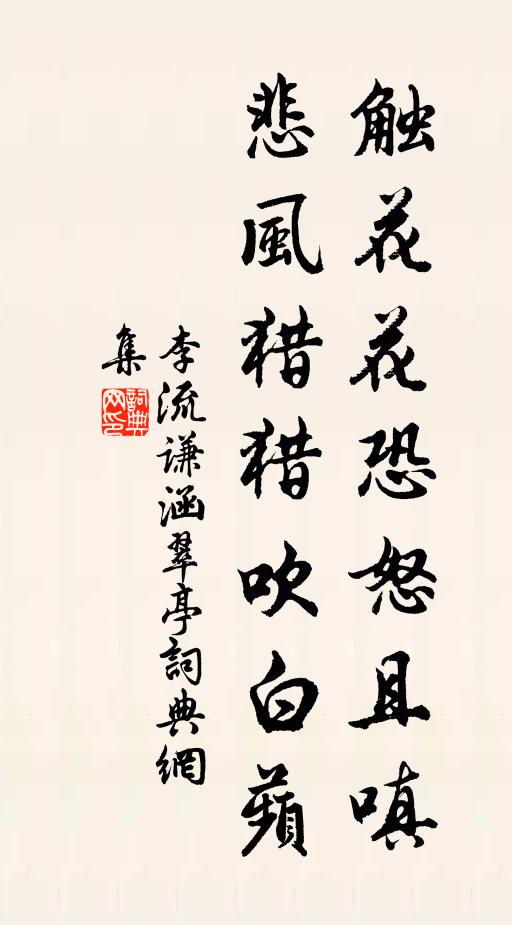 触花花恐怒且嗔
悲風猎猎吹白蘋
李流谦涵翠亭詞典網
集
詞典
网印